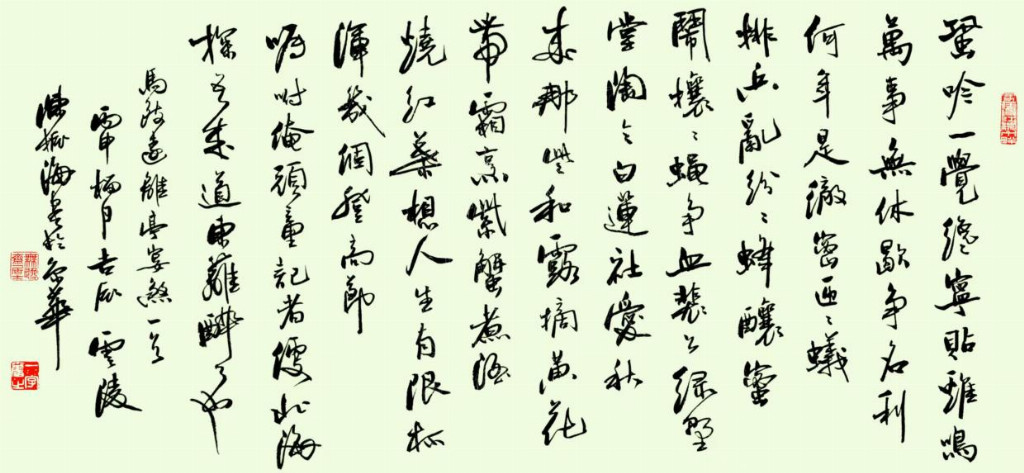 蛩吟一覺纔寧貼雞鳴
萬事無休歇爭名利
何年是徹密匝〻蟻
排兵亂紛〻蜂釀蜜
鬧攘〻蠅爭血裴公綠野
堂陶令白蓮社愛秋
來那些和露摘黃花
帶霜烹紫蟹煮酒
燒紅葉想人生有限杯
渾幾個登高節
囑咐俺頑童記者便北海
探吾來道東籬醉了也
馬致遠離亭宴煞一首
丙申月吉辰雲陵
陳振海書於京華